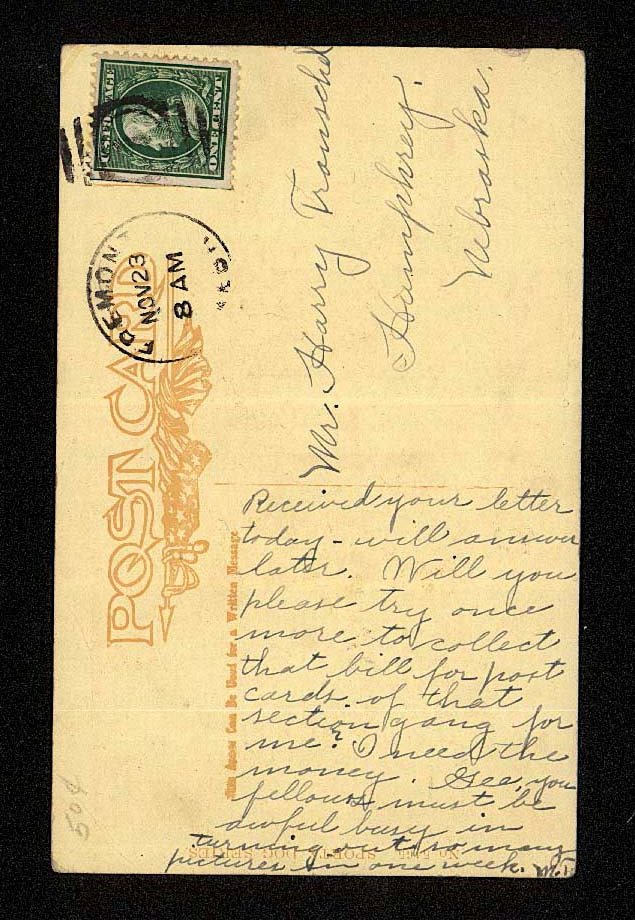 U.S. POSTAGE
ONE CENT
NOV 23
8 AM
POST CARD
This Space Can Be Used for a Written Message
Mr. Harry
Humphrey.
Nebraska.
Received your letter
today - will answer
later. Will you
please try once
more to collect
that bill for post
cards of that
section gang for
me? I need the
money. Gee, you
fellows must be
awful busy in
turning out so many
pictures in one week.
SPORTY DOG SERIES
50¢